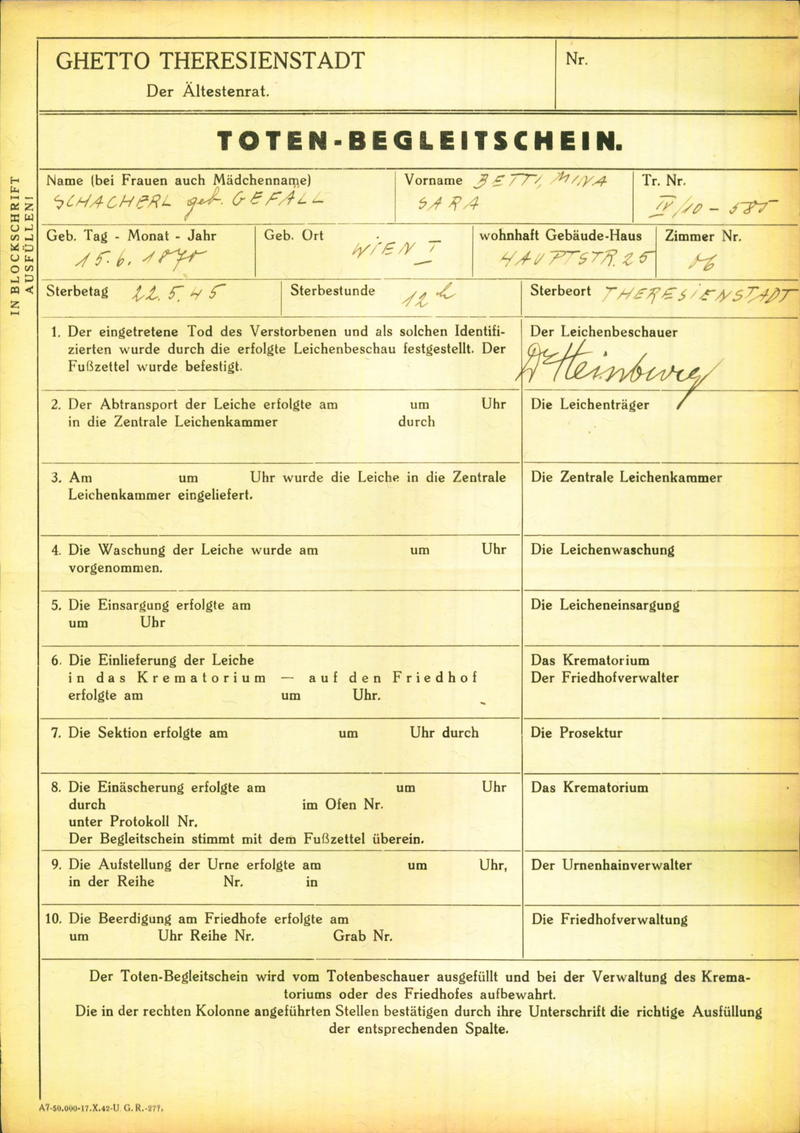 GHETTO THERESIENSTADT
Der Ältestenrat.
Nr.
TOTEN-BEGLEITSCHEIN.
IN BLOCKSCHRIFT
AUSFÜLLEN!
Name (bei Frauen auch Mädchenname)
SCHACHERL geb. GEFALL
Vorname BETTI, MINA
SARA
Tr. Nr.
IV/10 - 585
Geb. Tag - Monat - Jahr
15. 6. 1871
Geb. Ort WIEN I
wohnhaft Gebäude-Haus
HAUPTSTR. 25
Zimmer Nr.
Sterbetag 22. 5. 45
Sterbestunde 12 h
Sterbeort THERESIENSTADT
1. Der eingetretene Tod des Verstorbenen und als solchen Identifi-
zierten wurde durch die erfolgte Leichenbeschau festgestellt. Der
Fußzettel wurde befestigt.
Der Leichenbeschauer
2. Der Abtransport der Leiche erfolgte am um Uhr
in die Zentrale Leichenkammer durch
Die Leichenträger
3. Am um Uhr wurde die Leiche in die Zentrale
Leichenkammer eingeliefert.
Die Zentrale Leichenkammer
4. Die Waschung der Leiche wurde am um Uhr
vorgenommen.
Die Leichenwaschung
5. Die Einsargung erfolgte am
um Uhr
Die Leicheneinsargung
6. Die Einlieferung der Leiche
in das Krematorium — auf den Friedhof
erfolgte am um Uhr.
Das Krematorium
Der Friedhofverwalter
7. Die Sektion erfolgte am um Uhr durch
Die Prosektur
8. Die Einäscherung erfolgte am um Uhr
durch im Ofen Nr.
unter Protokoll Nr.
Der Begleitschein stimmt mit dem Fußzettel überein.
Das Krematorium
9. Die Aufstellung der Urne erfolgte am um Uhr,
in der Reihe Nr. in
Der Urnenhainverwalter
10. Die Beerdigung am Friedhofe erfolgte am
um Uhr Reihe Nr. Grab Nr.
Die Friedhofverwaltung
Der Toten-Begleitschein wird vom Totenbeschauer ausgefüllt und bei der Verwaltung des Krema-
toriums oder des Friedhofes aufbewahrt.
Die in der rechten Kolonne angeführten Stellen bestätigen durch ihre Unterschrift die richtige Ausfüllung
der entsprechenden Spalte.
A7-50.000-17.X.42-U. G. R.-277.